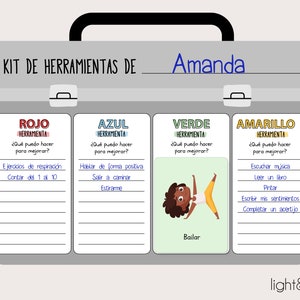 KIT DE HERRAMIENTAS DE Amanda
ROJO
HERRAMIENTA
¿Qué puedo hacer para mejorar?
Ejercicios de respiración
Contar del 1 al 10
AZUL
HERRAMIENTA
¿Qué puedo hacer para mejorar?
Hablar de forma positiva
Salir a caminar
Estirarme
VERDE
HERRAMIENTA
¿Qué puedo hacer para mejorar?
Bailar
AMARILLO
HERRAMIENTA
¿Qué puedo hacer para mejorar?
Escuchar música
Leer un libro
Pintar
Escribir mis sentimientos
Completar un acertijo
light&